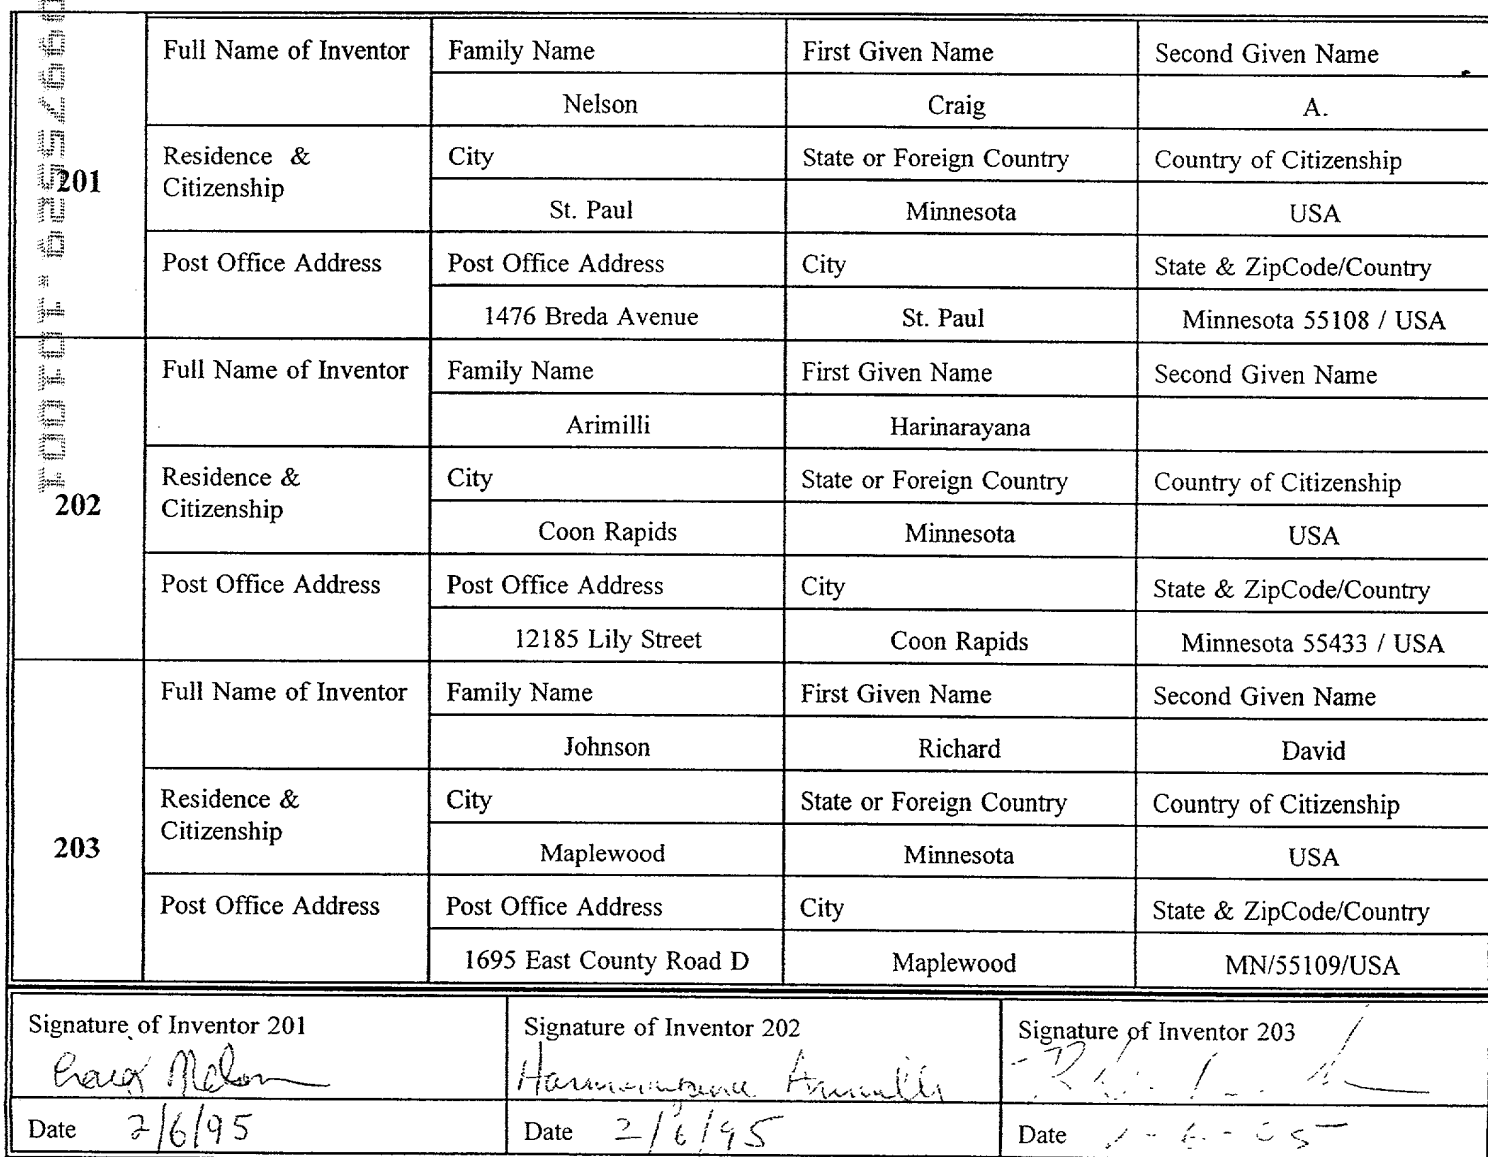 Full Name of Inventor Family Name First Given Name Second Given Name
Nelson Craig A.
201 Residence & Citizenship City State or Foreign Country Country of Citizenship
St. Paul Minnesota USA
Post Office Address Post Office Address City State & ZipCode/Country
1476 Breda Avenue St. Paul Minnesota 55108 / USA
Full Name of Inventor Family Name First Given Name Second Given Name
Arimilli Harinarayana
202 Residence & Citizenship City State or Foreign Country Country of Citizenship
Coon Rapids Minnesota USA
Post Office Address Post Office Address City State & ZipCode/Country
12185 Lily Street Coon Rapids Minnesota 55433 / USA
Full Name of Inventor Family Name First Given Name Second Given Name
Johnson Richard David
203 Residence & Citizenship City State or Foreign Country Country of Citizenship
Maplewood Minnesota USA
Post Office Address Post Office Address City State & ZipCode/Country
1695 East County Road D Maplewood MN/55109/USA
Signature of Inventor 201 Signature of Inventor 202 Signature of Inventor 203
Craig Nelson Harinarayana Arimilli
Date 2/6/95 Date 2/6/95 Date